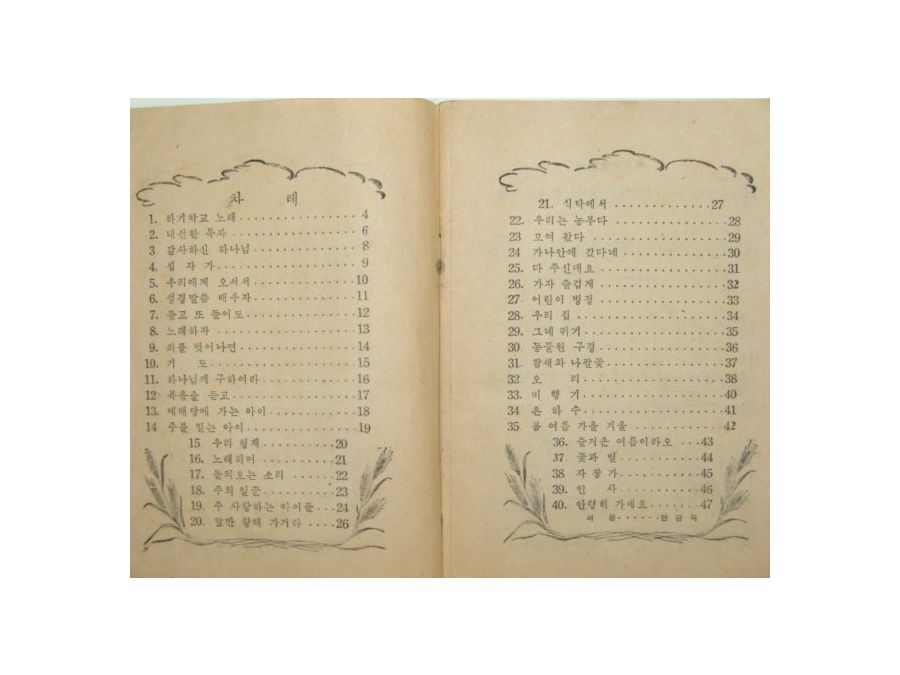 차 례
1. 하기학교 노래 . . . . . . . . . . . . . . . . 4
2. 내선한 목자 . . . . . . . . . . . . . . . . 6
3 감사하신 하나님 . . . . . . . . . . . . . . 8
4. 십 자 가 . . . . . . . . . . . . . . . . . . 9
5. 우리에게 오서서 . . . . . . . . . . . . . . 10
6. 성경말씀 배우자 . . . . . . . . . . . . . . 11
7. 듣고 또 들어도 . . . . . . . . . . . . . . . 12
8. 노래하자 . . . . . . . . . . . . . . . . . . 13
9. 죄를 벗어나면 . . . . . . . . . . . . . . . 14
10. 기 도 . . . . . . . . . . . . . . . . . . . 15
11. 하나님께 구하여라 . . . . . . . . . . . . 16
12 복음을 듣고 . . . . . . . . . . . . . . . . 17
13. 예배당에 가는 아이 . . . . . . . . . . . 18
14 주를 믿는 아이 . . . . . . . . . . . . . . 19
15 우리 형제 . . . . . . . . . . . 20
16. 노래하며 . . . . . . . . . . . 21
17. 들려오는 소리 . . . . . . . . 22
18. 주의 일꾼 . . . . . . . . . . 23
19. 주 사랑하는 아이들 . . . 24
20. 앞만 향해 가거라 . . . . 26
21. 식탁에서 . . . . . . . . . . . . . 27
22. 우리는 농부다 . . . . . . . . . . . . . . . 28
23 모여 왔다 . . . . . . . . . . . . . . . . . 29
24 가나안에 갔다네 . . . . . . . . . . . . . . 30
25. 다 주신대요 . . . . . . . . . . . . . . . . 31
26. 가자 즐겁게 . . . . . . . . . . . . . . . . 32
27. 어린이 병정 . . . . . . . . . . . . . . . . 33
28. 우리 집 . . . . . . . . . . . . . . . . . . 34
29. 그네 뛰기 . . . . . . . . . . . . . . . . . 35
30. 동물원 구경 . . . . . . . . . . . . . . . . 36
31. 참새와 나팔꽃 . . . . . . . . . . . . . . . 37
32. 오 리 . . . . . . . . . . . . . . . . . . . 38
33. 비 행 기 . . . . . . . . . . . . . . . . . . 40
34 은 하 수 . . . . . . . . . . . . . . . . . . 41
35 봄 여름 가을 겨울 . . . . . . . . . . . . 42
36. 즐거운 여름이라오 . . . 43
37. 꽃과 벌 . . . . . . . . . . . 44
38 자 장 가 . . . . . . . . . . 45
39. 인 사 . . . . . . . . . . . . 46
40. 안령히 가세요 . . . . . . 47
서 울 . . . . . .